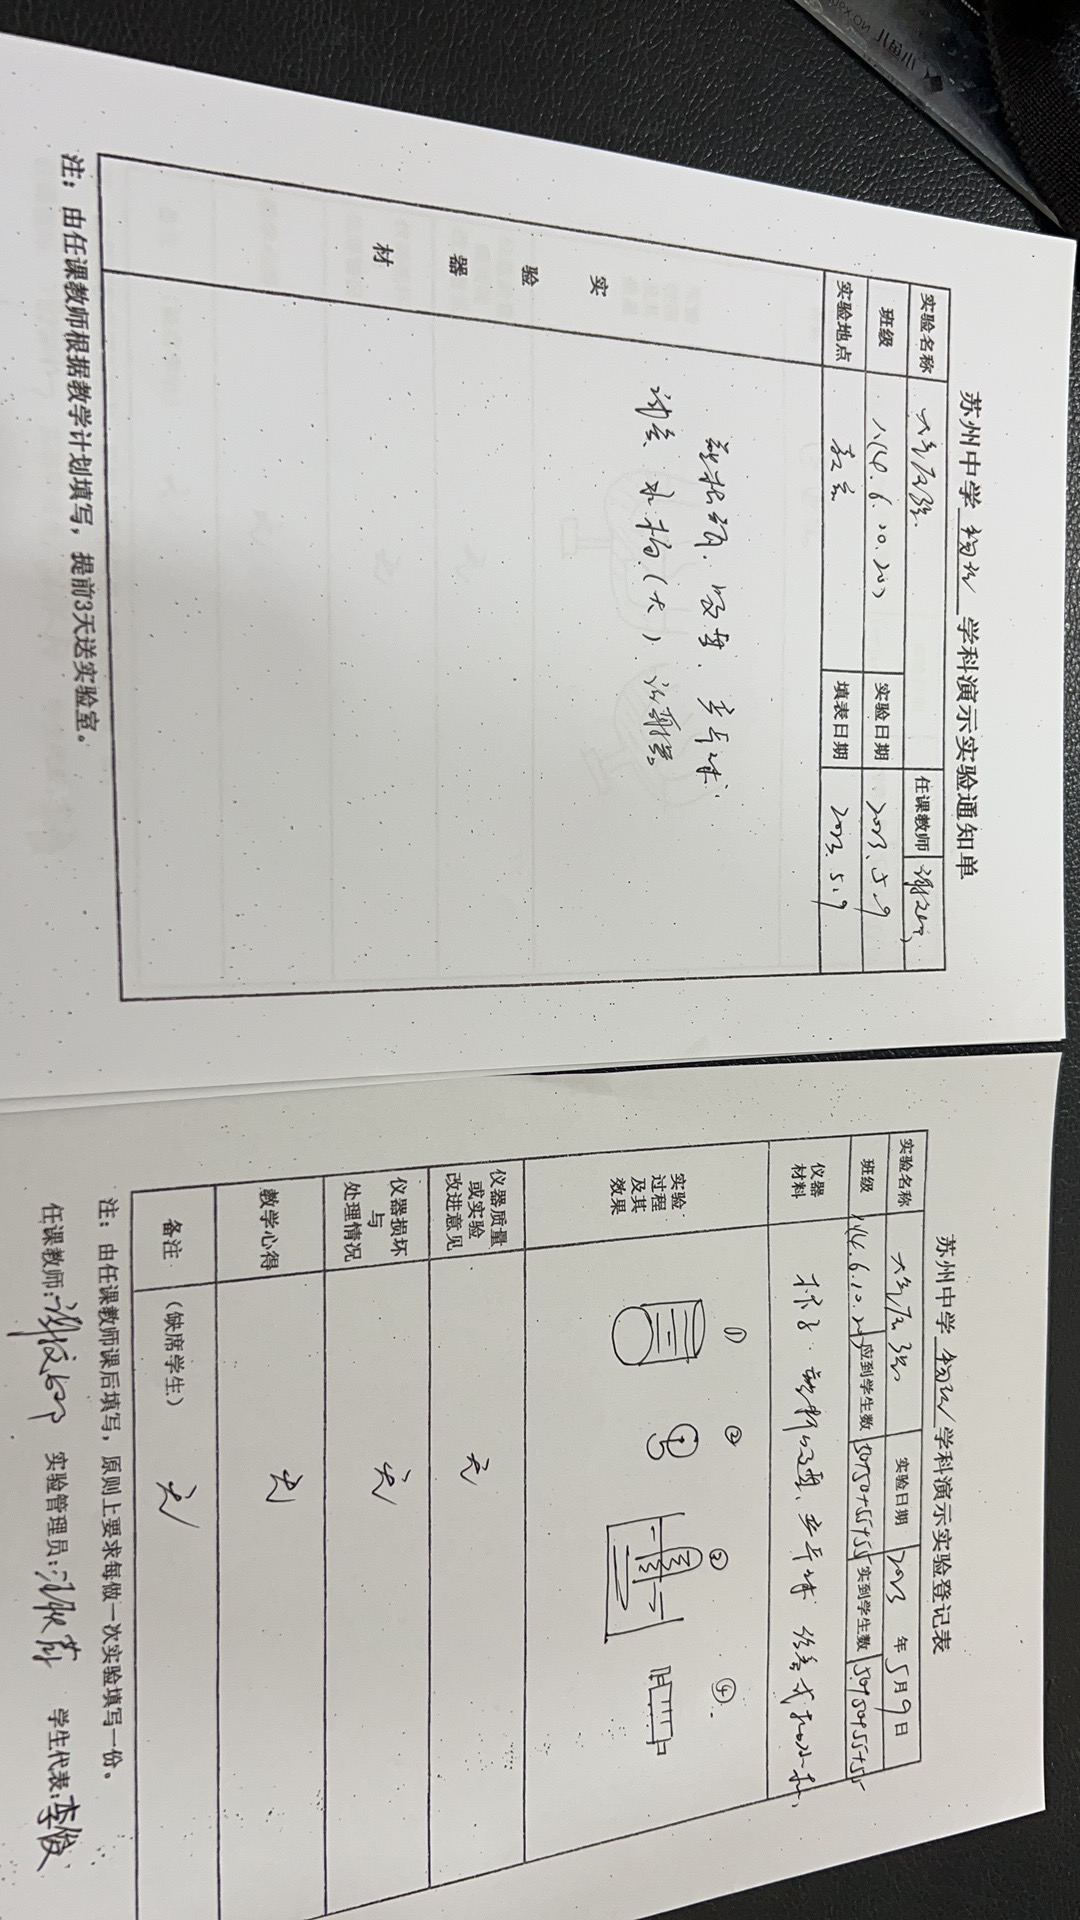 苏州中学 物理 学科演示实验通知单
实验名称 大气压强 任课教师
班级 八(4.6.10.20) 实验日期 2023.5.9
实验地点 教室 填表日期 2023.5.9
实验器材
吸盘. 乒乓球.
试管. 水槽(大)
注：由任课教师根据教学计划填写，提前3天送实验室。
苏州中学 物理 学科演示实验登记表
实验名称 大气压强 实验日期 2023 年 5月 9日
班级 应到学生数 50+50+55+55 实到学生数 50+50+55+55
仪器材料 杯子. 吸盘、乒乓球
实验过程及其效果 ① ② ③ ④
仪器质量或实验改进意见 无
仪器损坏与处理情况 无
教学心得 无
备注 (缺席学生) 无
注：由任课教师课后填写，原则上要求每做一次实验填写一份。
任课教师: 实验管理员: 学生代表:李俊
小鱼儿